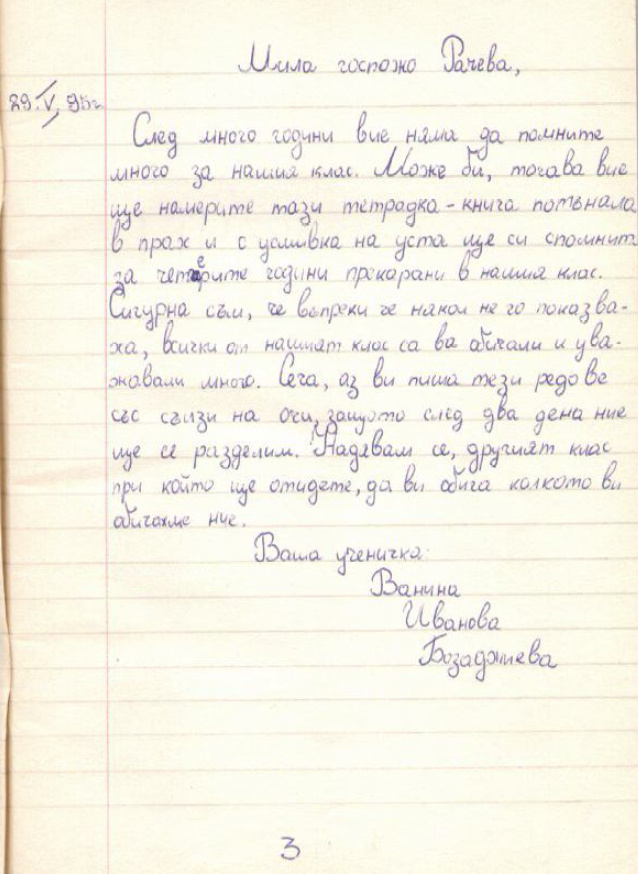 Мила госпожо Рачева,
29.V.95г.
След много години вие няма да помните
много за нашия клас. Може би, тогава вие
ще намерите тази тетрадка - книга потънала
в прах и с усмивка на уста ще си спомнит
за четерите години прекарани в нашия клас.
Сигурна съм, че въпреки че някои не го показва-
ха, всички от нашият клас са ва обичали и ува-
жавали много. Сега, аз ви пиша тези редове
със сълзи на очи, защото след два дена ние
ще се разделим. Надявам се, другият клас
при който ще отидете, да ви обича колкото ви
обичахме ние.
Ваша ученичка:
Ванина
Иванова
Бозаджиева
3